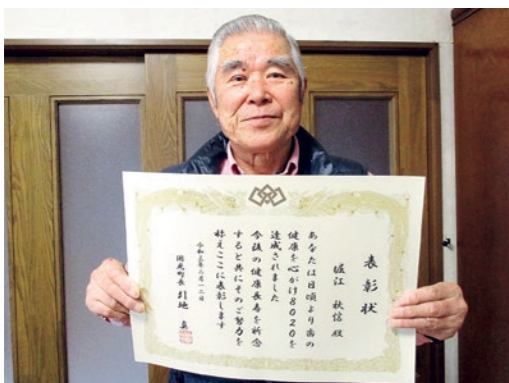 表彰状
堀江 秋信 殿
あなたは日頃より歯の
健康を心がけ8020を
達成されました
今後の健康長寿を祈念
すると共にそのご努力を
称えここに表彰します
令和三年二月一二日
国見町長 引地 真